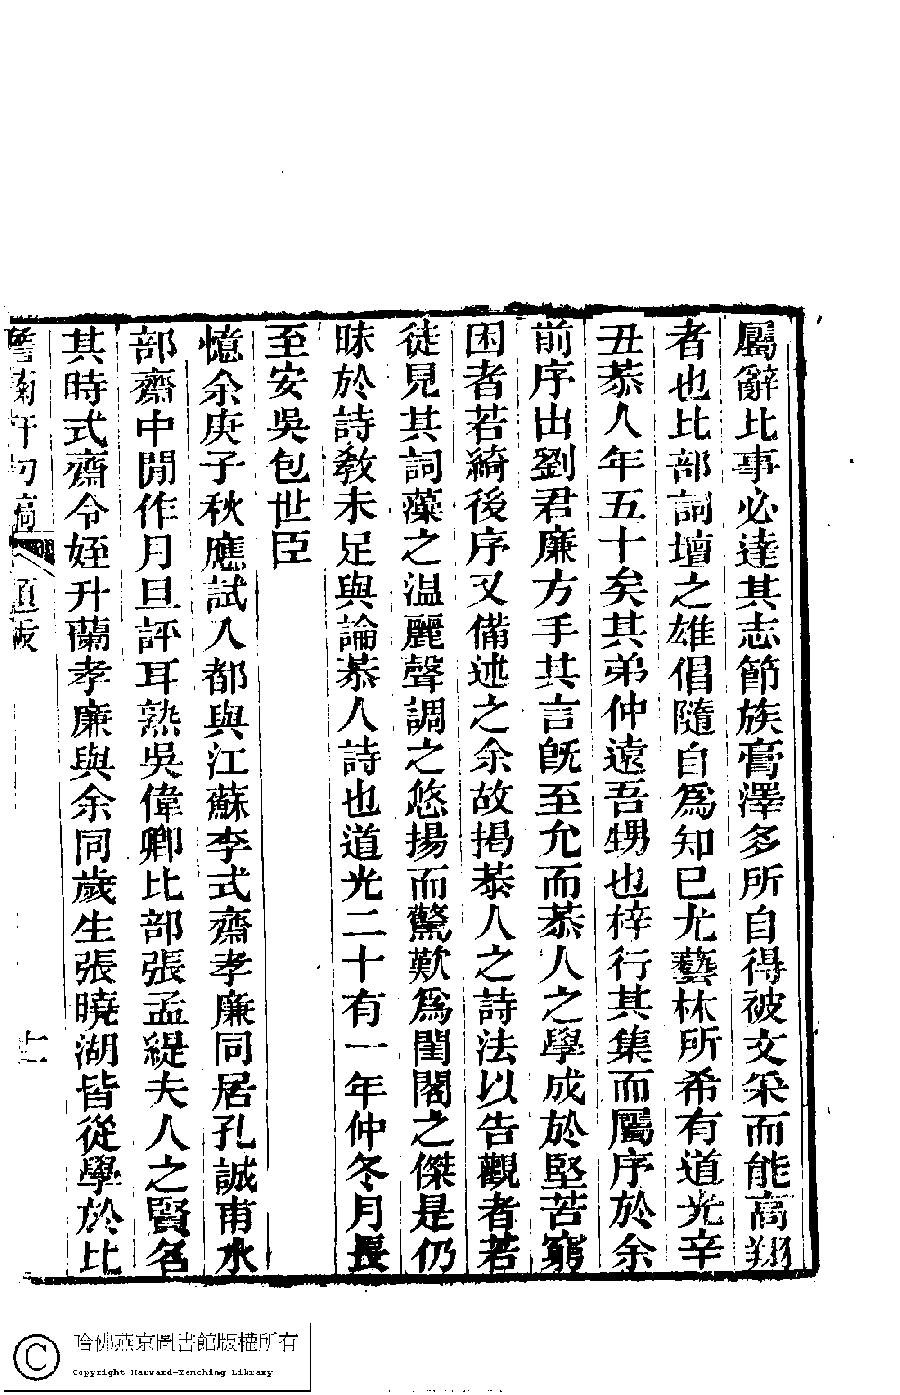 屬辭比事必達其志節族膏澤多所自得被文采而能高翔
者也比部詞壇之雄倡隨自爲知已尤藝林所希有道光辛
丑恭人年五十矣其弟仲遠吾甥也梓行其集而屬序於余
前序出劉君廉方手其言旣至允而恭人之學成於堅苦窮
困者若綺後序又備述之余故揭恭人之詩法以告觀者若
徒見其詞藻之温麗聲調之悠揚而驚歎爲閨閣之傑是仍
昧於詩教未足與論恭人詩也道光二十有一年仲冬月長
至安吳包世臣
憶余庚子秋應試入都與江蘇李式齋孝廉同居孔誠甫水
部齋中閒作月旦評耳熟吳偉卿比部張孟緹夫人之賢名
其時式齋令姪升蘭孝廉與余同歲生張曉湖皆從學於比
十一
哈佛燕京圖書館版權所有
Copyright Harvard-Yenching Library